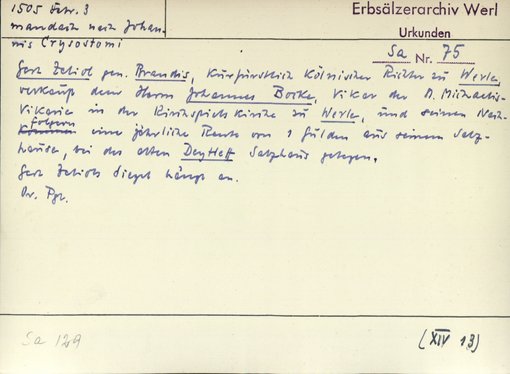 1505 Febr. 3
mandach nach Johan-
nis Crysostomi
Erbsälzerarchiv Werl
Urkunden
Sa Nr. 75
Gert Zelion gen. Brandis, Kurfürstlich Kölnischer Richter zu Werle,
verkauft dem Herrn Johannes Borke, Vikar der St. Michaelis-
Vikarie in der Kirchspielskirche zu Werle, und seinen Nach-
folgern eine jährliche Rente von 1 Gulden aus seinem Salz-
hause, bei des alten Salzhaus gelegen.
Gert Zelions Siegel hängt an.
Or. Pgt.
Sa 129
(XIV 13)